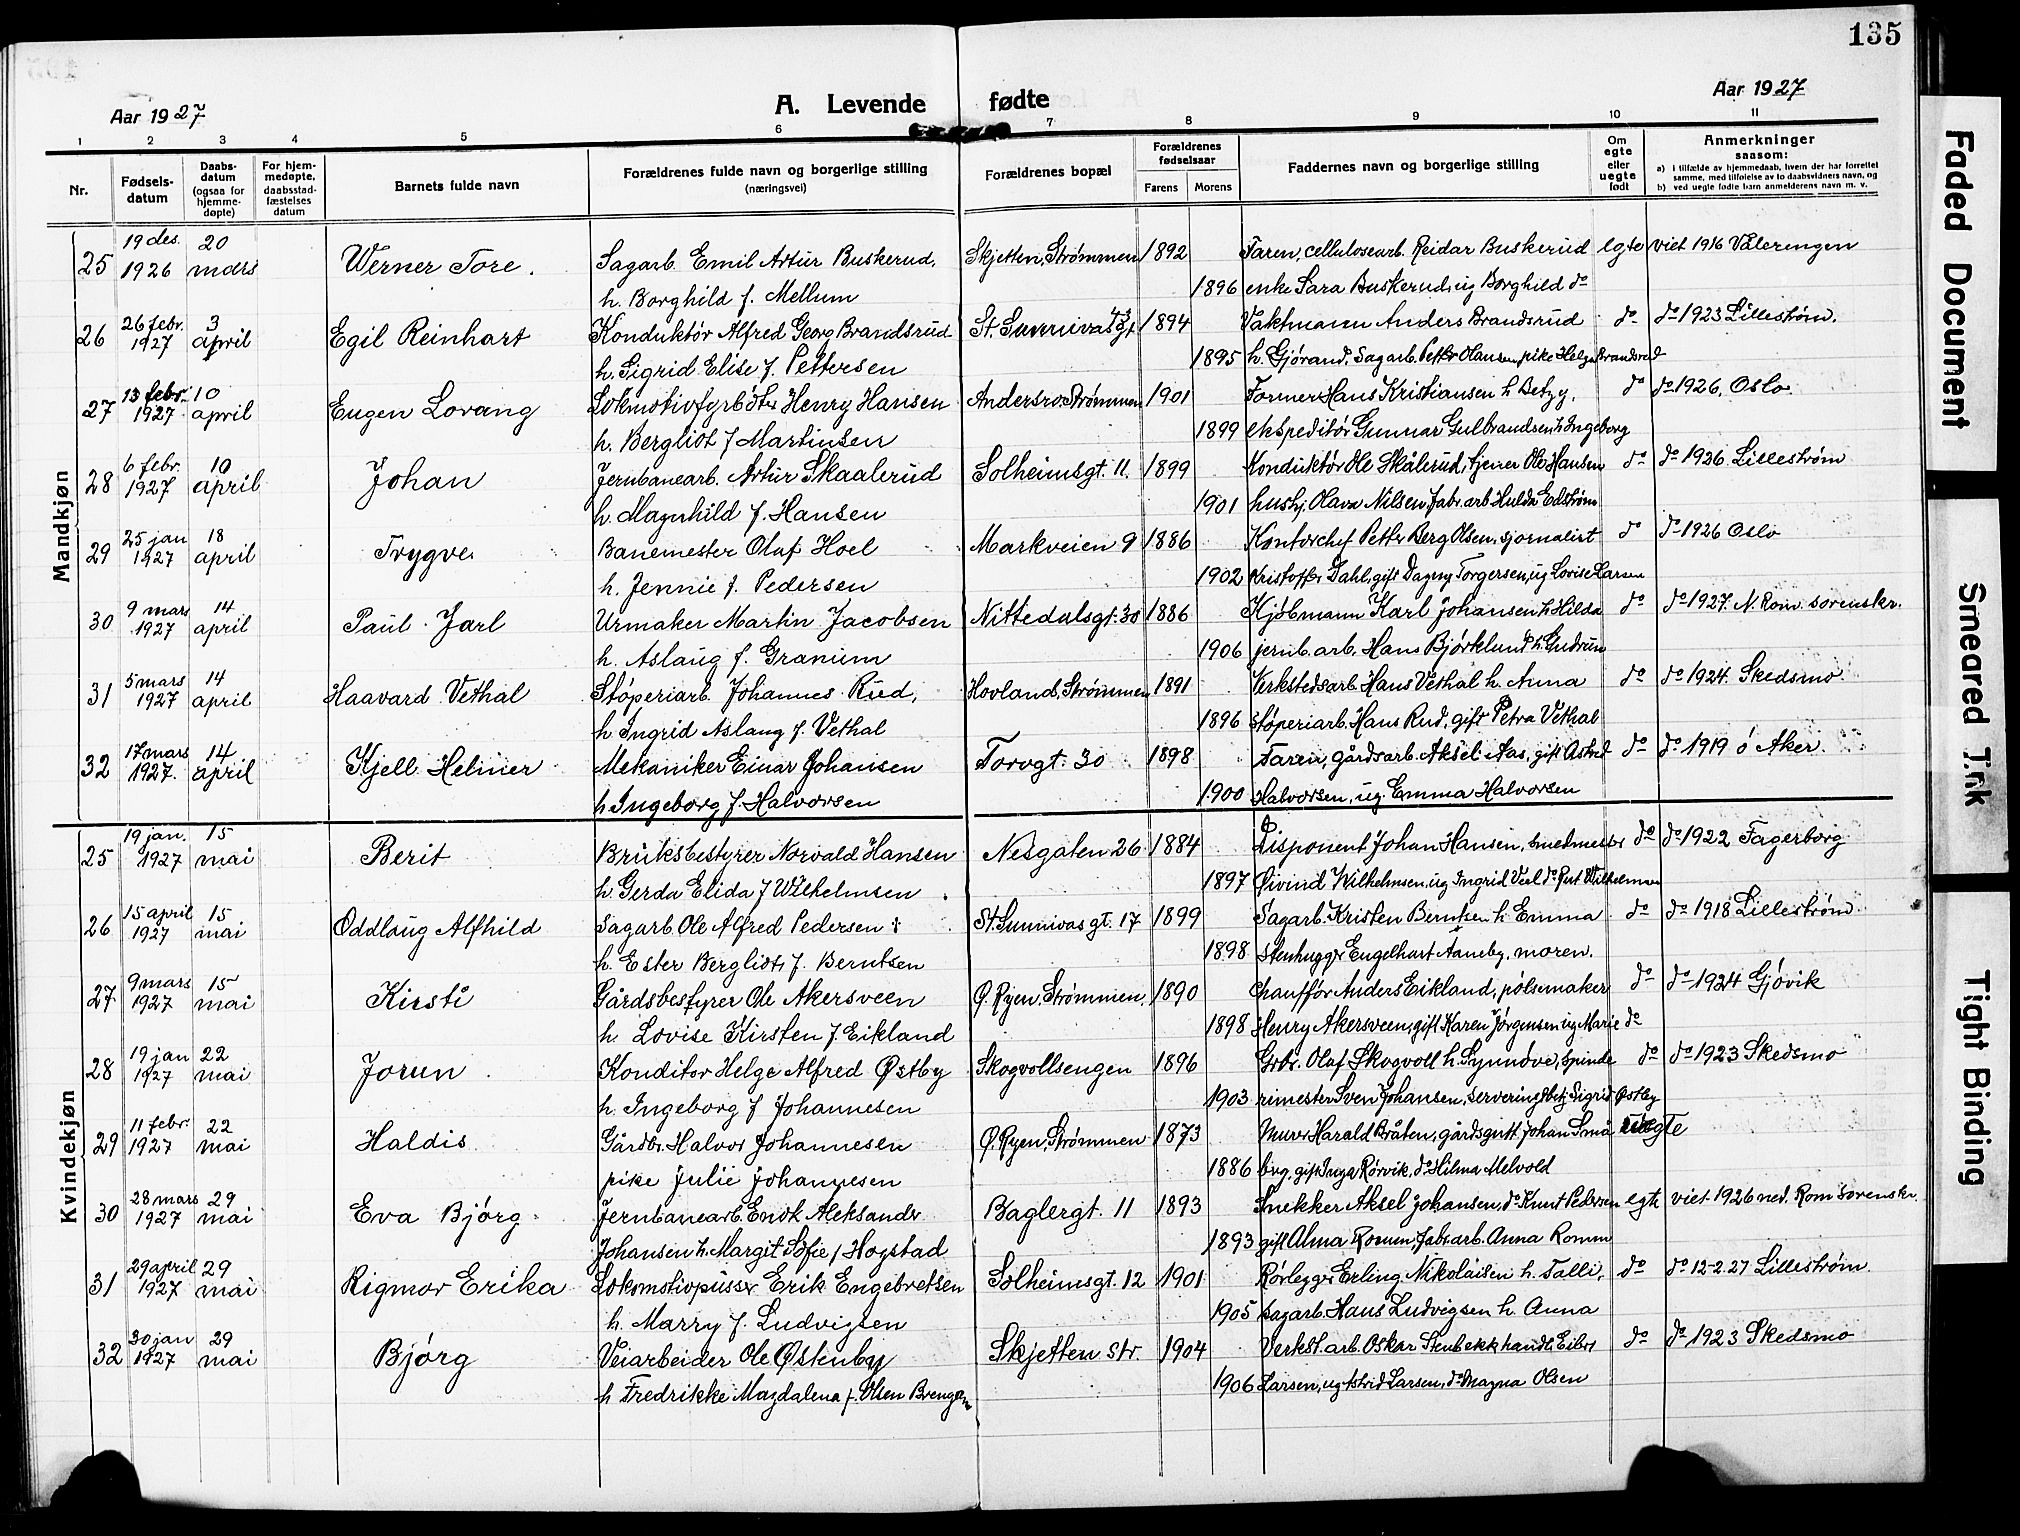 135
Aar 1927
A. Levende fødte
Aar 1927
1 2 3 4 5 6 7 8 9 10 11
Nr.
Fødsels-
datum
Daabs-
datum
(ogsaa for
hjemme-
døpte)
For hjem-
medøpte,
daabsstad-
fæstelses
datum
Barnets fulde navn
Forældrenes fulde navn og borgerlige stilling
(næringsvei)
Forældrenes bopæl
Forældrenes
fødselsaar
Farens Morens
Faddernes navn og borgerlige stilling
Om
egte
eller
uegte
født
Anmerkninger
saasom:
a) I tilfælde av hjemmedaab, hvem der har forrettet
samme, med tilføielse av to daabsvidners navn, og
b) ved uegte fødte barn anmelderens navn m. v.
Mandkjøn
25 19 des. 1926 20 mars Werner Tore. Sagarb. Emil Artur Buskerud, Skjetten, Strømmen 1892 Faren, cellulosearb. Reidar Buskerud egte viet 1916 Vålerengen
h. Borghild f. Mellum 1896 enke Sara Buskerud, ug Borghild do
26 26 febr. 1927 3 april Egil Reinhart Konduktør Alfred Georg Brandsrud St. Sunnivas gt 1894 Vaktmann Anders Brandsrud do do 1923 Lillestrøm.
h. Sigrid Elise f. Pettersen 1895 h. Gjørand, Sagarb. Petter Olausen, pike Helga Brandsrud
27 13 febr. 1927 10 april Eugen Lovang Lokmotivfyrbøter Henry Hansen Andersro. Strømmen 1901 Former Hans Kristiansen h Betzy, do do 1926, Oslo.
h. Bergliot f Martinsen 1899 ekspeditør Gunnar Gulbrandsen h Ingeborg
28 6 febr. 1927 10 april Johan Jernbanearb. Artur Skaalerud Solheimsgt. 11. 1899 Konduktør Ole Skålerud, tjener Ole Hansen do do 1926 Lillestrøm
h. Magnhild f. Hansen 1901 hushj. Olava Nilsen, fabr. arb Hulda Edstrøm
29 25 jan 1927 18 april Trygve. Banemester Olaf Hoel Markveien 9 1886 Kontorchef Petter Berg Olsen, sjornalist do do 1926 Oslo
h. Jennie f. Pedersen 1902 Kristoffer Dahl, gift Dagny Torgersen, ug Lovise Larsen
30 9 mars 1927 14 april Paul Jarl Urmaker Martin Jacobsen Nittedalsgt. 30 1886 Kjøbmann Karl Johansen h Hilda do do 1927. N. Rom. sorenskr.
h. Aslaug f. Granum 1906 jernb. arb. Hans Bjørklund h. Gudrun
31 5 mars 1927 14 april Haavard Vethal Støperiarb. Johannes Rud, Hovland, Strømmen 1891 Verkstedsarb. Hans Vethal h. Anna do do 1924. Skedsmo
h Ingrid Aslaug f. Vethal 1896 støperiarb. Hans Rud, gift Petra Vethal
32 17 mars 1927. 14 april Kjell Helmer Mekaniker Einar Johansen Torvgt. 30 1898 Faren, gårdsarb. Aksel Aas, gift Astrid do do 1919 Ø Aker.
h Ingeborg f. Halvorsen 1900 Halvorsen, ug. Emma Halvorsen
Kvindekjøn
25 19 jan. 1927 15 mai Berit Bruksbestyrer Norvald Hansen Nesgaten 26 1884 Disponent Johan Hansen, smedmester do do 1922 Fagerborg
h Gerda Elida f Wilhelmsen 1897 Øivind Wilhelmsen, ug Ingrid Veel do Rut Wilhelmsen
26 15 april 1927 15 mai Oddlaug Alfhild Sagarb. Ole Alfred Pedersen St. Sunnivas gt. 17 1899 Sagarb. Kristen Berntsen h. Emma do do 1918 Lillestrøm
h. Ester Bergliot, f. Berntsen 1898 Stenhugger Engelhart Aaneby, moren.
27 9 mars 1927 15 mai Kirsti Gårdsbestyrer Ole Akersveen Ø. Ryen, Strømmen. 1890 Chauffør Anders Eikland, pølsemaker do do 1924 Gjøvik
h Lovise Kirsten f. Eikland 1898 Henry Akersveen, gift Karen Jørgensen ug Marie do
28 19 jan 1927 22 mai Jorun Konditor Helge Alfred Østby Skogvollsengen 1896 Grbr. Olaf Skogvoll h. Synnøve, spinde do do 1923 Skedsmo
h. Ingeborg f Johannesen 1903 rimester Sven Johansen, serveringsbetj. Sigrid Østby
29 11 febr. 1927 22 mai Haldis Gårdbr. Halvor Johannesen Ø. Ryen, Strømmen 1873 Murer Harald Bråten, gårdsgutt Johan Små uegte
pike Julie Johannesen 1886 brug, gift Inga Rørvik, do Hilma Melvold
30 28 mars 1927 29 mai Eva Bjørg Jernbanearb. Enok Aleksander Baglergt. 11 1893 Snekker Aksel Johansen, do Knut Pedersen egte viet 1926 ned. Rom sorenskr.
Johansen h. Margit Sofie f Hogstad 1893 gift Alma Romm, fabr. arb. Anna Romm
31 29 april 1927 29 mai Rigmor Erika Lokomotivpusser Erik Engebretsen Solheimsgt. 12 1901 Rørlegger Erling Nikolaisen h. Falli, do do 12-2.27 Lillestrøm
h. Marry f. Ludvigsen 1905 sagarb. Hans Ludvigsen h. Anna
32 30 jan 1927 29 mai Bjørg Veiarbeider Ole Østenby Skjetten str. 1904 Verkst. arb. Oskar Stenbekk handl. Eibert do do 1923 Skedsmo
h Fredrikke Magdalena f. Olsen Brengen 1906 Larsen, ug Astrid Larsen, do Magna Olsen
Faded Document
Smeared Ink
Tight Binding